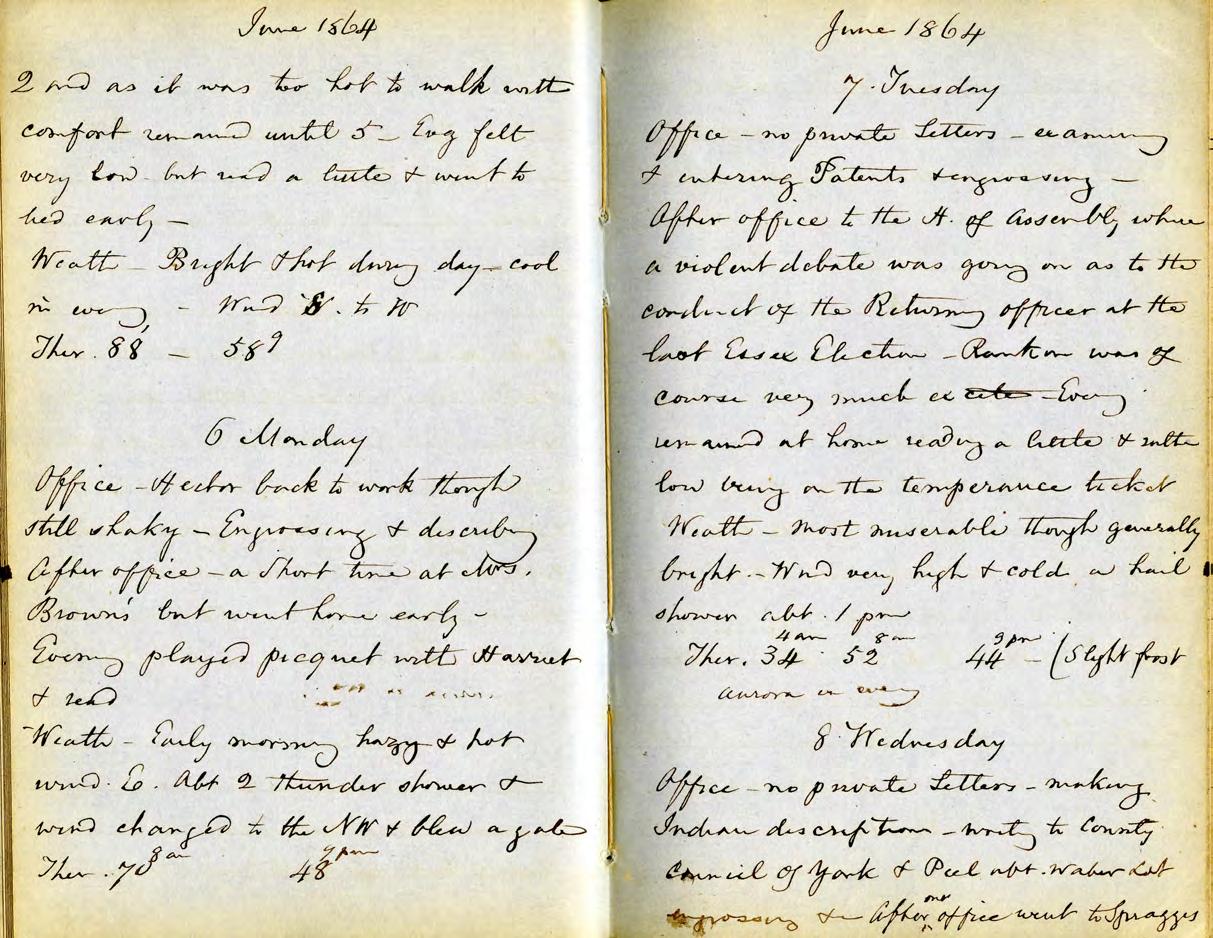 June 1864
2 and as it was too hot to walk with
comfort remained until 5 - Evg felt
very low - but read a little & went to
bed early -
Weath - Bright & hot during day - cool
in eveng - Wind S. to W
Ther. 88 - 58°
6 Monday
Office - Hector back to work though
still shaky - Engrossing & describing
After office - a short time at Mrs.
Brown's but went home early -
Evening played picquet with Harriet
& read
Weath - Early morning hazy & hot
wind. E. Abt 2 thunder shower &
wind changed to the NW & blew a gale
8 am 9 pm
Ther. 70 48
June 1864
7. Tuesday
Office - no private letters - examining
& entering Patents & engrossing -
After office to the H. of Assembly where
a violent debate was going on as to the
conduct of the Returning officer at the
last Essex Election - Rankin was of
course very much ex cite - Eveng
remained at home reading a little & rather
low being on the temperance ticket
Weath - most miserable though generally
bright. - Wind very high & cold a hail
shower abt. 1 pm
4 am 8 am 9 pm
Ther. 34 52 44 - (Slight frost
aurora in eveng
8 Wednesday
Office - no private letters - making
Indian descriptions - writg to County
Council of York & Peel abt. Water Lot
engrossing &c After office went to Spragges